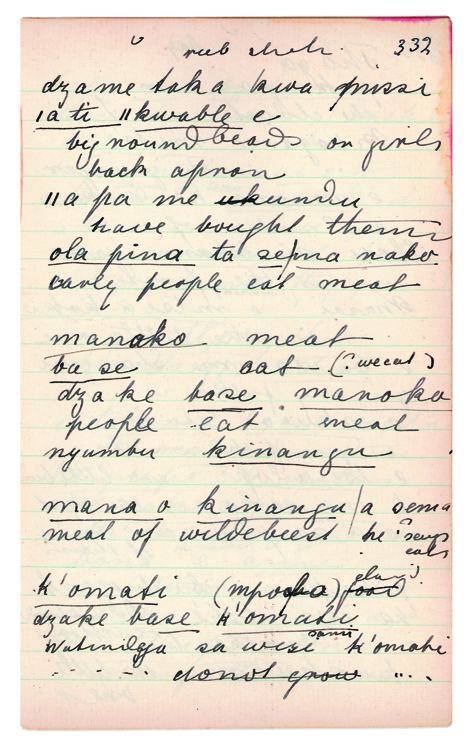 332
dzame toka kwa pussi
ıatı ıı kwable e
big round beads on girls
back apron
ıı a pa me ukundu
have bought them
ola pina ta se/ma nako
early people eat meat
manako meat
ba se eat (? we eat)
dzake base manoko
people eat meat
nyumbu kinangu
mana o kinangu / a sema
meat of wildebeest he ? says
eats
k'omati (mpocha) food
dzake base k'omati
sa wezi k'omati
donot grow " . .